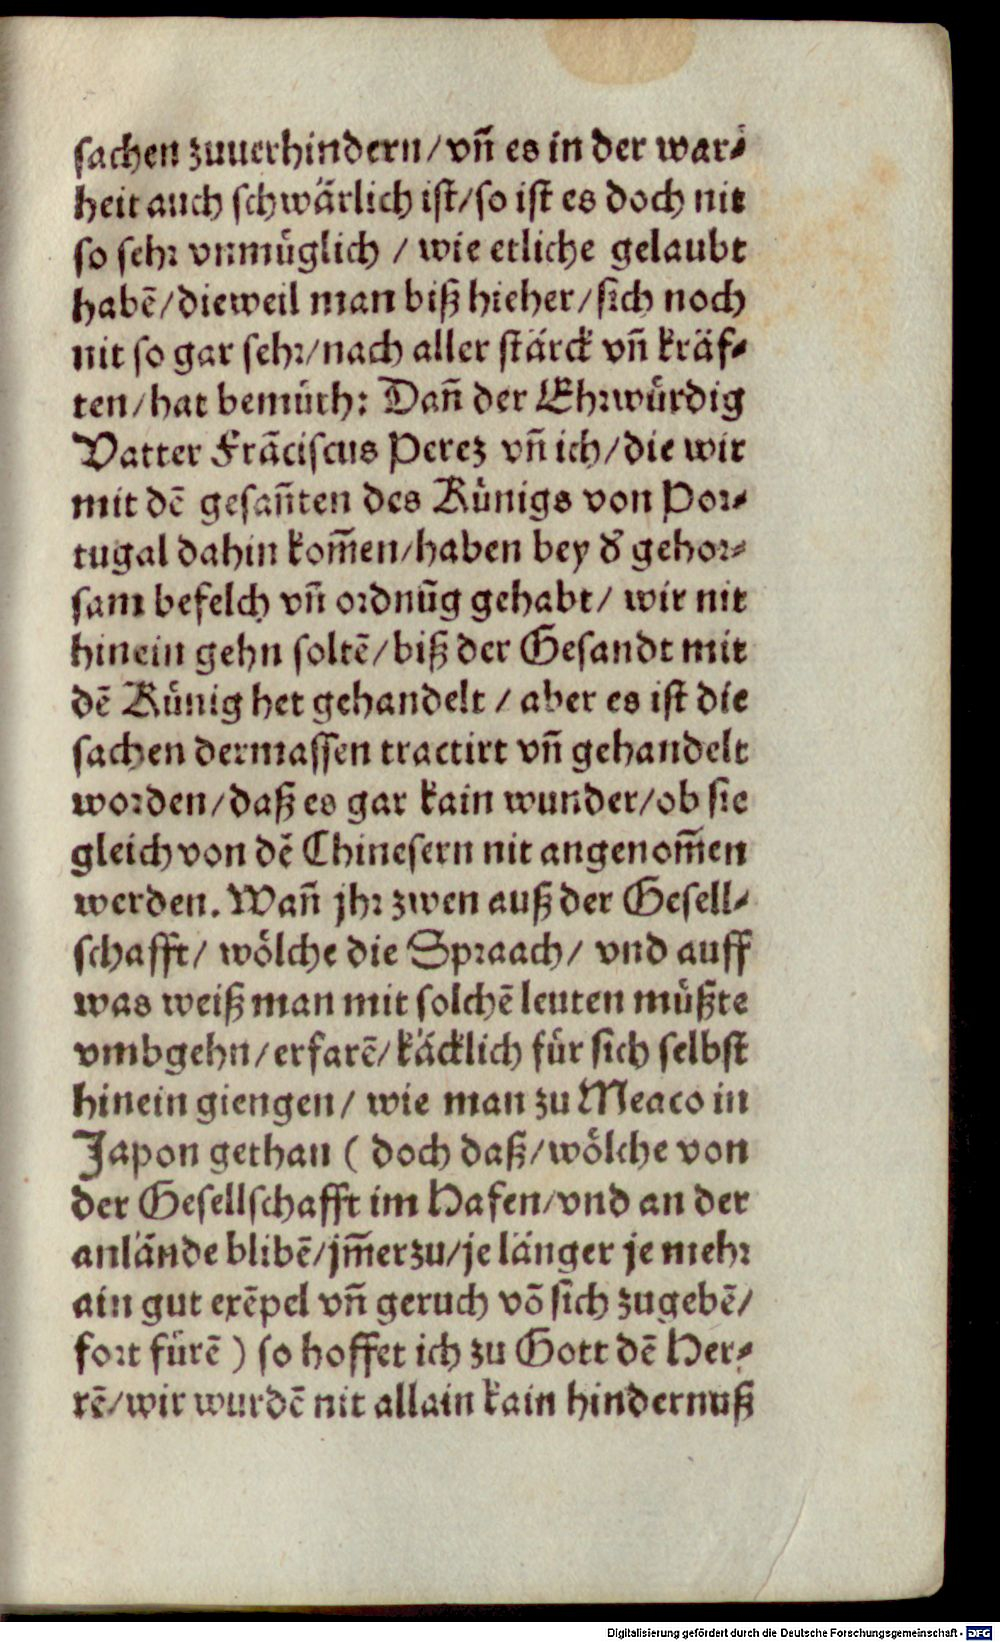 sachen zuuerhindern/vñ es in der war-
heit auch schwärlich ist/so ist es doch nit
so sehr vnmüglich / wie etliche gelaubt
habẽ/dieweil man biß hieher/sich noch
nit so gar sehr/nach aller stärck vñ kräf-
ten/hat bemüth: Dañ der Ehrwürdig
Vatter Frãciscus Perez vñ ich/die wir
mit dẽ gesañten des Künigs von Por-
tugal dahin kom̃en/haben bey d' gehor-
sam befelch vñ ordnũg gehabt/ wir nit
hinein gehn soltẽ/biß der Gesandt mit
dẽ Künig het gehandelt / aber es ist die
sachen dermassen tractirt vñ gehandelt
worden/daß es gar kain wunder/ob sie
gleich von dẽ Chinesern nit angenom̃en
werden. Wañ jhr zwen auß der Gesell-
schafft/ wölche die Spraach/ vnd auff
was weiß man mit solchẽ leuten müßte
vmbgehn/erfarẽ/käcklich für sich selbst
hinein giengen/ wie man zu Meaco in
Japon gethan ( doch daß/wölche von
der Gesellschafft im Hafen/vnd an der
anlände blibẽ/jm̃erzu/je länger je mehr
ain gut exẽpel vñ geruch võ sich zugebẽ/
fort fürẽ ) so hoffet ich zu Gott dẽ Her-
rẽ/wir wurdẽ nit allain kain hindernuß
Digitalisierung gefördert durch die Deutsche Forschungsgemeinschaft - DFG